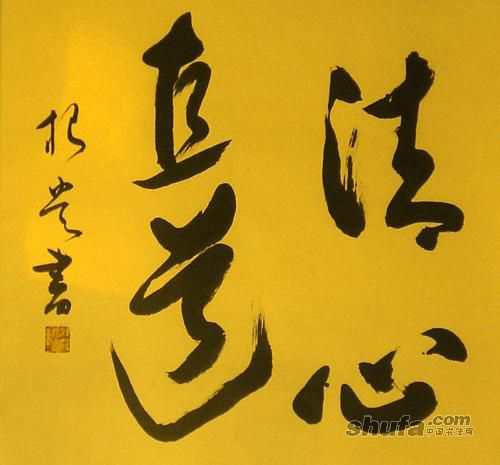 清心
直道
振贵书
shufa.com
中国书法网